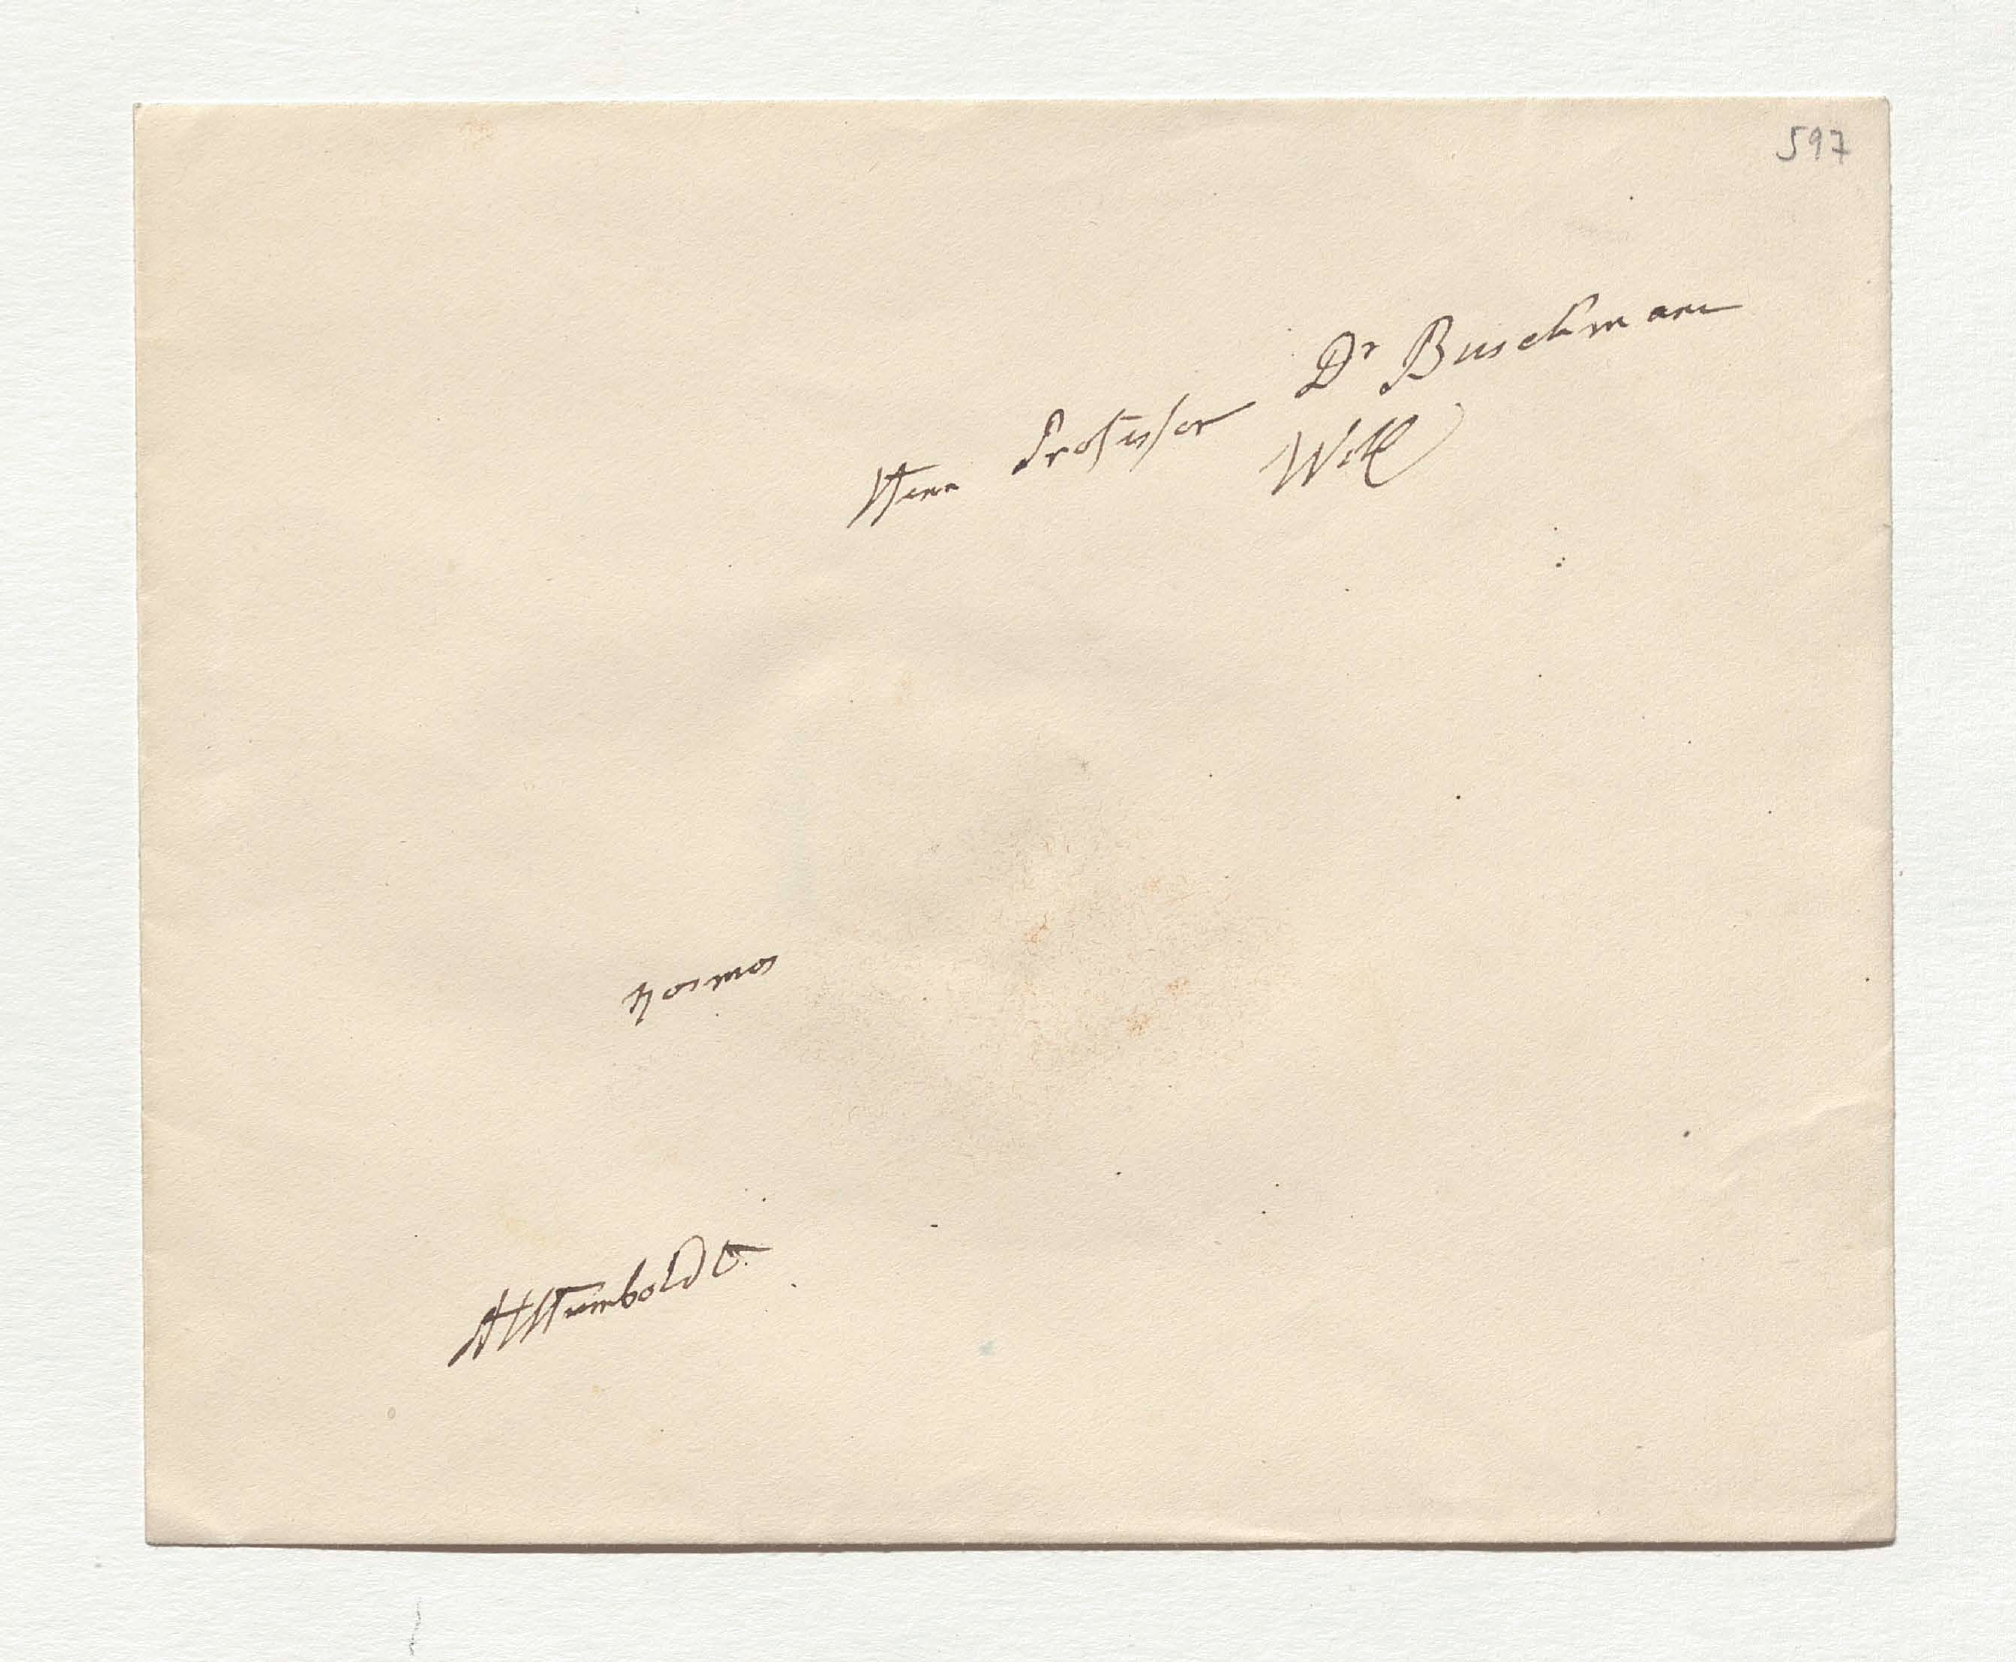 597
Herrn Professor Dr Buschmann
kosmos
AHumboldt